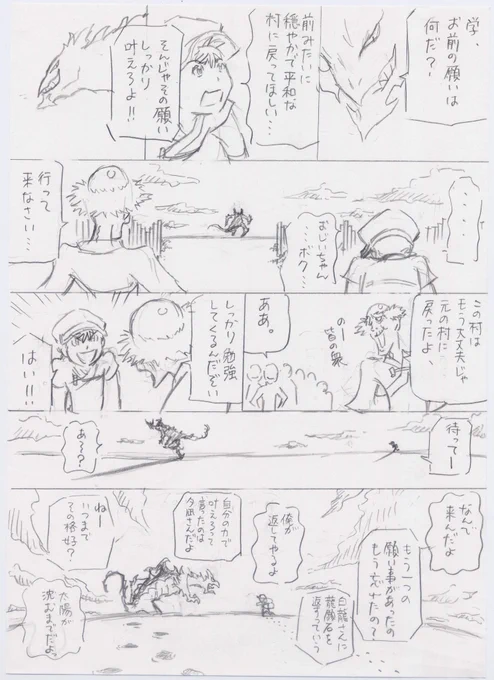 学、
お前の願いは
何だ?
前みたいに
穏やかで平和な
村に戻ってほしい…
そんじゃその願い
しっかり
叶えろよ!!
・・・・
おじいちゃん
…ボク…
行って
来なさい…
この村は
もう大丈夫じゃ
元の村に
戻ったよ、
のー
皆の衆
ああ。
しっかり勉強
してくるんだぞい
はい!!
待ってー
あ~?
なんで
来んだよ
もう一つの
願い事があったの
もう忘れたの?
白龍さんに
龍願石を
返すっていう
俺が
返してやるよ
自分の力で
叶えろって
言ったのは
夕凪さんだよ
ねー
いつまで
その格好?
太陽が
沈むまでだよ